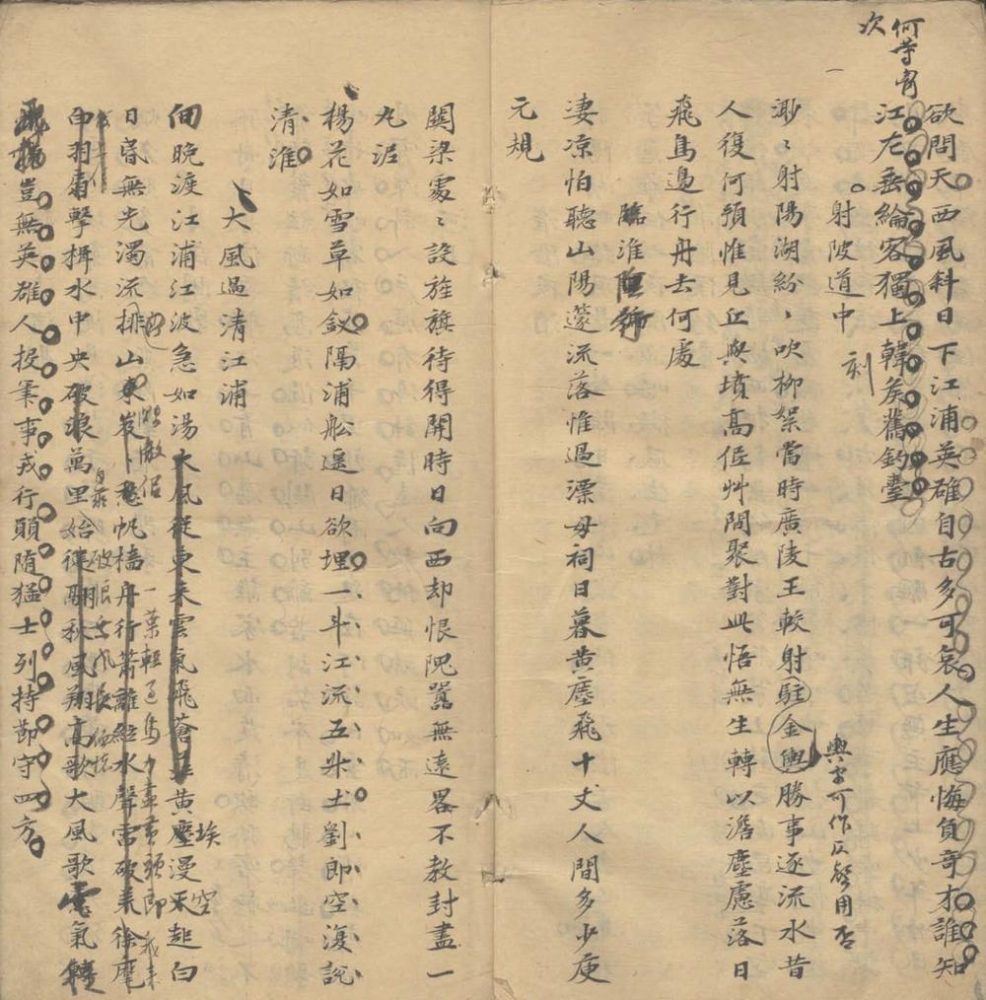 何等胸
次
欲問天西風斜日下江浦英雄自古多可哀人生應悔負奇才誰知
江左垂綸客獨上韓矦舊釣臺
射陂道中
刪
渺〻射陽湖紛〻吹柳絮當時廣陵王較射駐金輿勝事逐流水昔
輿字可作仄聲用否
人復何預惟見丘與墳高低艸間聚對此悟無生轉以澹塵慮落日
飛鳥邊行舟去何處
臨淮
凄凉怕聽山陽邃流落惟過漂母祠日暮黄塵飛十丈人間多少庾
元規
關梁處〻設旌旗待得開時日向西却恨隗囂無遠畧不教封盡一
丸泥
楊花如雪草如釵隔浦舩遥日欲埋一斗江流五斗土劉郎空復說
清淮
大風過清江浦
晚渡江浦江波急如湯大風從東来雲氣飛蒼茫黄塵漫天起白
埃空
日昏無光濁流排山來岌〻愁帆檣舟行若離絙水聲雷破柔徐麾
一葉輕過鳥
白羽扇擊楫水中央破浪萬里始從翮秋風翔高歌大風歌雲氣
飛揚豈無英雄人投筆事戎行願隨猛士列持節守四方